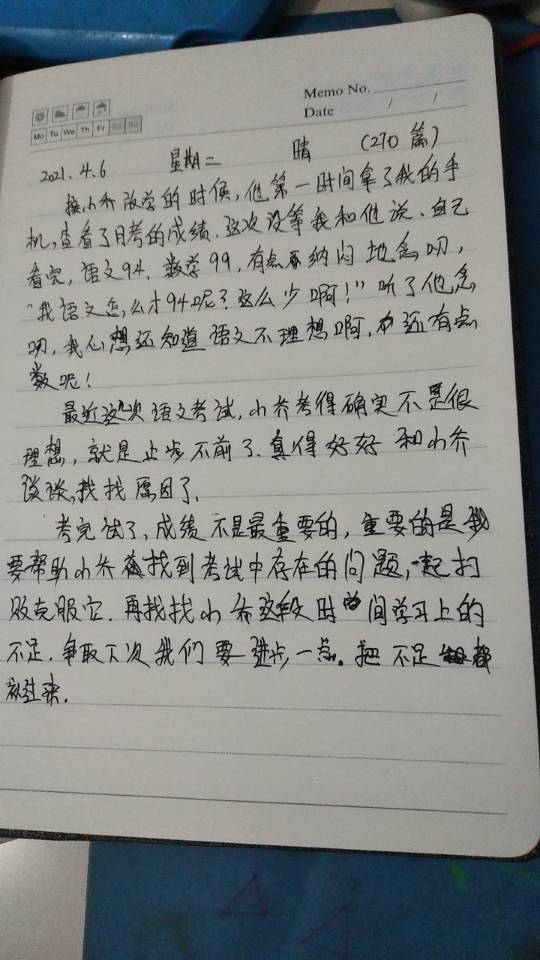 Memo No.
Date / /
Mo Tu We Th Fr Sa Su
2021.4.6 星期二 晴 (270篇)
接小乔放学的时候,他第一时间拿了我的手
机,查看了月考的成绩.这次没等我和他说、自己
看完,语文94.数学99,有点不纳闷地念叨,
“我语文怎么才94呢?这么少啊!”听了他念
叨,我心想还知道语文不理想啊,还有点
数呢!
最近这次语文考试,小乔考得确实不是很
理想,就是止步不前了.真得好好和小乔
谈谈,找找原因了.
考完试了,成绩不是最重要的,重要的是我
要帮助小乔找到考试中存在的问题,一起打
败克服它.再找找小乔这段时间学习上的
不足.争取下次我们要进步一点。把不足都
赶过来.